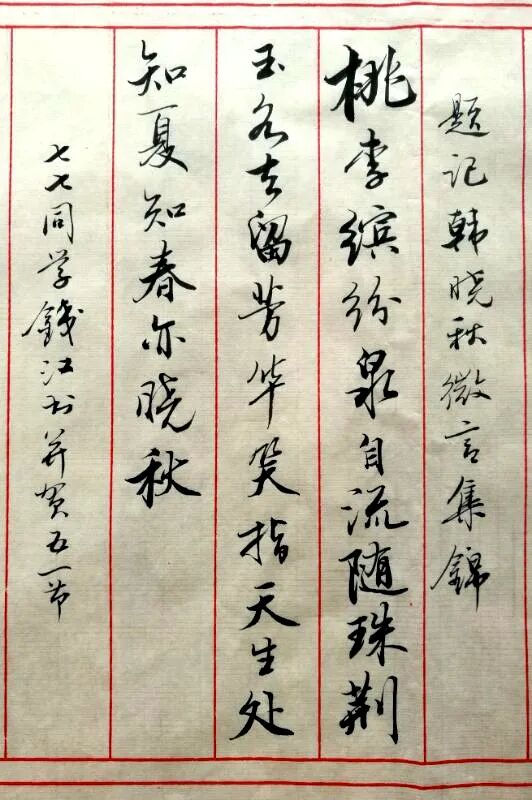 题记韩晓秋微言集锦
桃李缤纷泉自流随珠荆
玉各去留芳华笑指天生处
知夏知春亦晓秋
七七同学钱江书并贺五一节